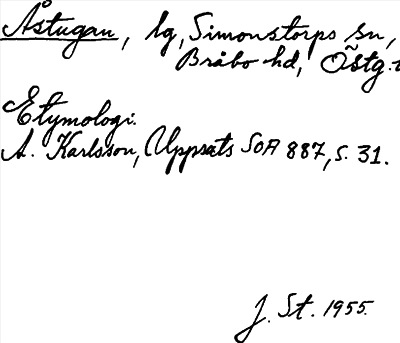 Åstugan, lg, Simonstorps sn,
Bråbo hd, Östg.
Etymologi.
A. Karlsson, Uppsats SOA 887, s. 31.
J. St. 1955.